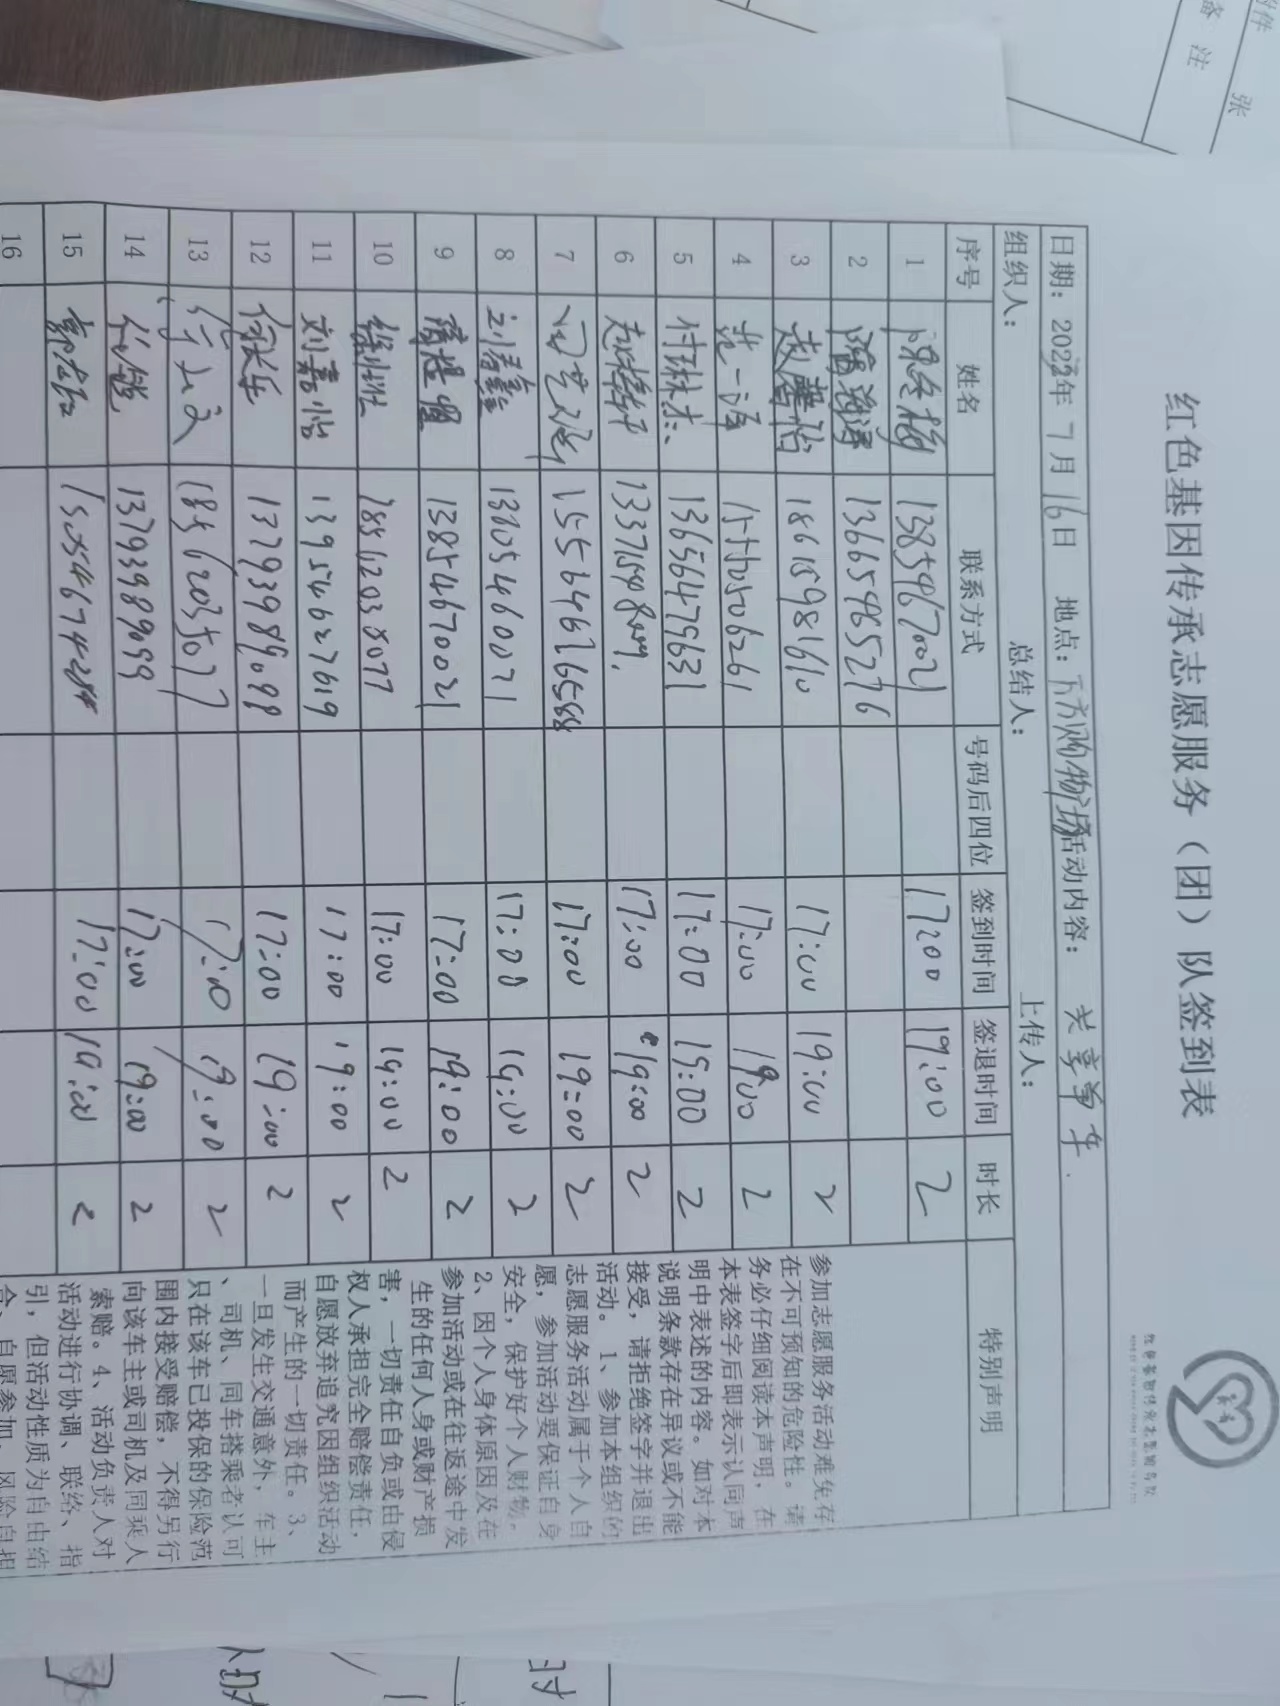 红色基因传承志愿服务（团）队签到表
日期：2023年7月16日 地点：东方购物广场活动内容：共享单车.
组织人： 总结人： 上传人：
序号 姓名 联系方式 号码后四位 签到时间 签退时间 时长 特别声明
1 13854670021 17:00 19:00 2
2 13665465276
3 赵馨怡 18615981610 17:00 19:00 2
4 范一诺 15550506261 17:00 19:00 2
5 付琳杰 13656479631 17:00 19:00 2
6 17:00 19:00 2
7 15564676588 17:00 19:00 2
8 刘春鑫 13605460071 17:00 19:00 2
9 13854670021 17:00 19:00 2
10 18561203077 17:00 19:00 2
11 刘嘉怡 13954627619 17:00 19:00 2
12 13793989099 17:00 19:00 2
13 17:00 19:00 2
14 13793989099 17:00 19:00 2
15 17:00 19:00 2
16
参加志愿服务活动难免存
在不可预知的危险性。请
务必仔细阅读本声明，在
本表签字后即表示认同声
明中表述的内容。如对本
说明条款存在异议或不能
接受，请拒绝签字并退出
活动。1、参加本组织的
志愿服务活动属于个人自
愿，参加活动要保证自身
安全，保护好个人财物。
2、因个人身体原因及在
参加活动或在往返途中发
生的任何人身或财产损
害，一切责任自负或由侵
权人承担完全赔偿责任，
自愿放弃追究因组织活动
而产生的一切责任。3、
一旦发生交通意外，车主
、司机、同车搭乘者认可
只在该车已投保的保险范
围内接受赔偿，不得另行
向该车主或司机及同乘人
索赔。4、活动负责人对
活动进行协调、联络、指
引，但活动性质为自由结
合、自愿参加、风险自担
备注
附件
张